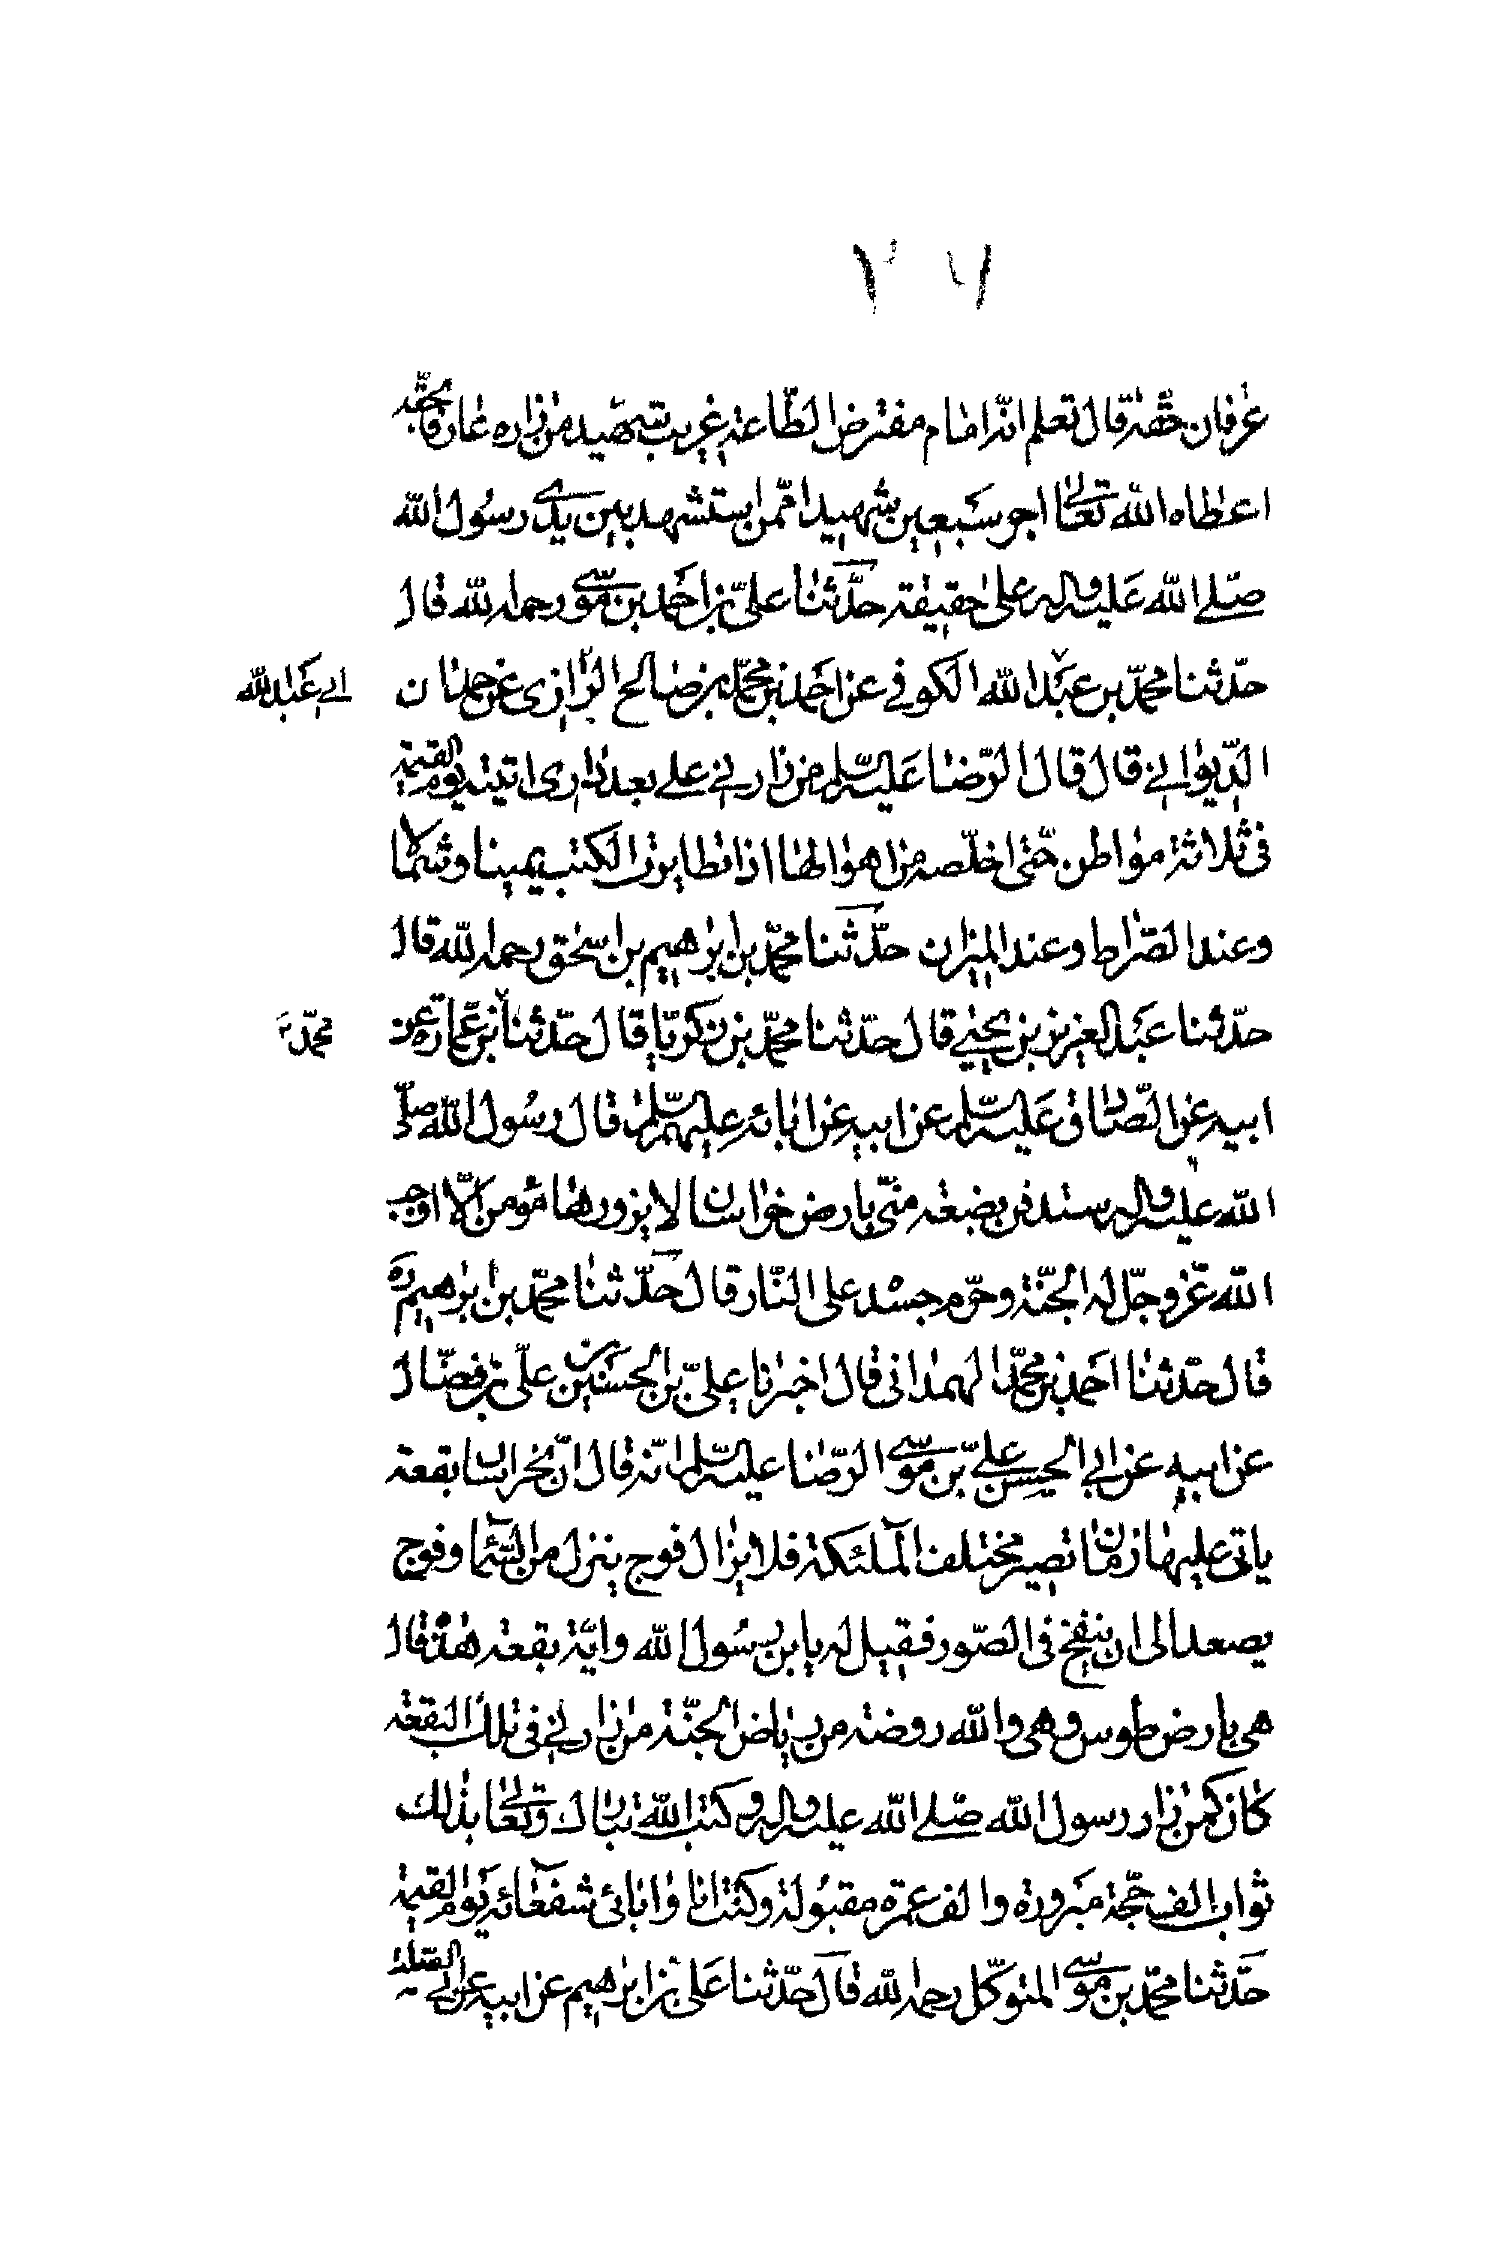 عرفان حقه قال تعلم انه امام مفترض الطاعة غريب شهيد من زاره عارفا بحقه
اعطاه الله تعالى اجر سبعين شهيدا ممن استشهد بين يدي رسول الله
صلى الله عليه واله على حقيقة حدثنا علي بن احمد بن موسى رحمه الله قال
حدثنا محمد بن عبد الله الكوفي عن احمد بن محمد بن صالح الرازي عن حمدان
ابي عبد الله
الديواني قال قال الرضا عليه السلم من زارني على بعد داري اتيته يوم القيمة
في ثلاثة مواطن حتى اخلصه من اهوالها اذا تطايرت الكتب يمينا وشمالا
وعند الصراط وعند الميزان حدثنا محمد بن ابرهيم بن اسحق رحمه الله قال
حدثنا عبد العزيز بن يحيى قال حدثنا محمد بن زكريا قال حدثنا بن عمارة عن
محمد
ابيه عن الصادق عليه السلم عن ابيه عن ابائه عليهم السلم قال رسول الله صلى
الله عليه واله ستدفن بضعة مني بارض خراسان لا يزورها مؤمن الا اوجب
الله عز وجل له الجنة وحرم جسده على النار قال حدثنا محمد بن ابرهيم ره
قال حدثنا احمد بن محمد الهمداني قال اخبرنا علي بن الحسن بن علي بن فضال
عن ابيه عن ابي الحسن علي بن موسى الرضا عليه السلم انه قال ان بخراسان لبقعة
ياتي عليها زمان تصير مختلف الملئكة فلا يزال فوج ينزل من السماء وفوج
يصعد الى ان ينفخ في الصور فقيل له يابن رسول الله واية بقعة هذه قال
هي بارض طوس وهي والله روضة من رياض الجنة من زارني في تلك البقعة
كان كمن زار رسول الله صلى الله عليه واله وكتب الله تبارك وتعالى بذلك
ثواب الف حجة مبرورة والف عمرة مقبولة وكنت انا وابائي شفعائه يوم القيمة
حدثنا محمد بن موسى المتوكل رحمه الله قال حدثنا علي بن ابرهيم عن ابيه عن ابي الصلت